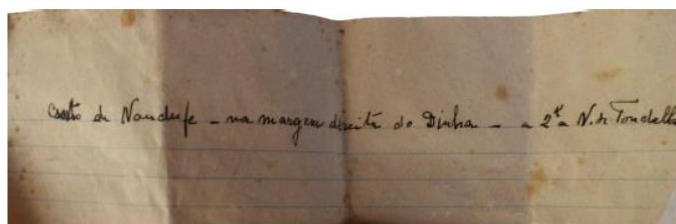 Castro de Nandufe - na margem direita do Dinha - a 2k a N. de Tondella